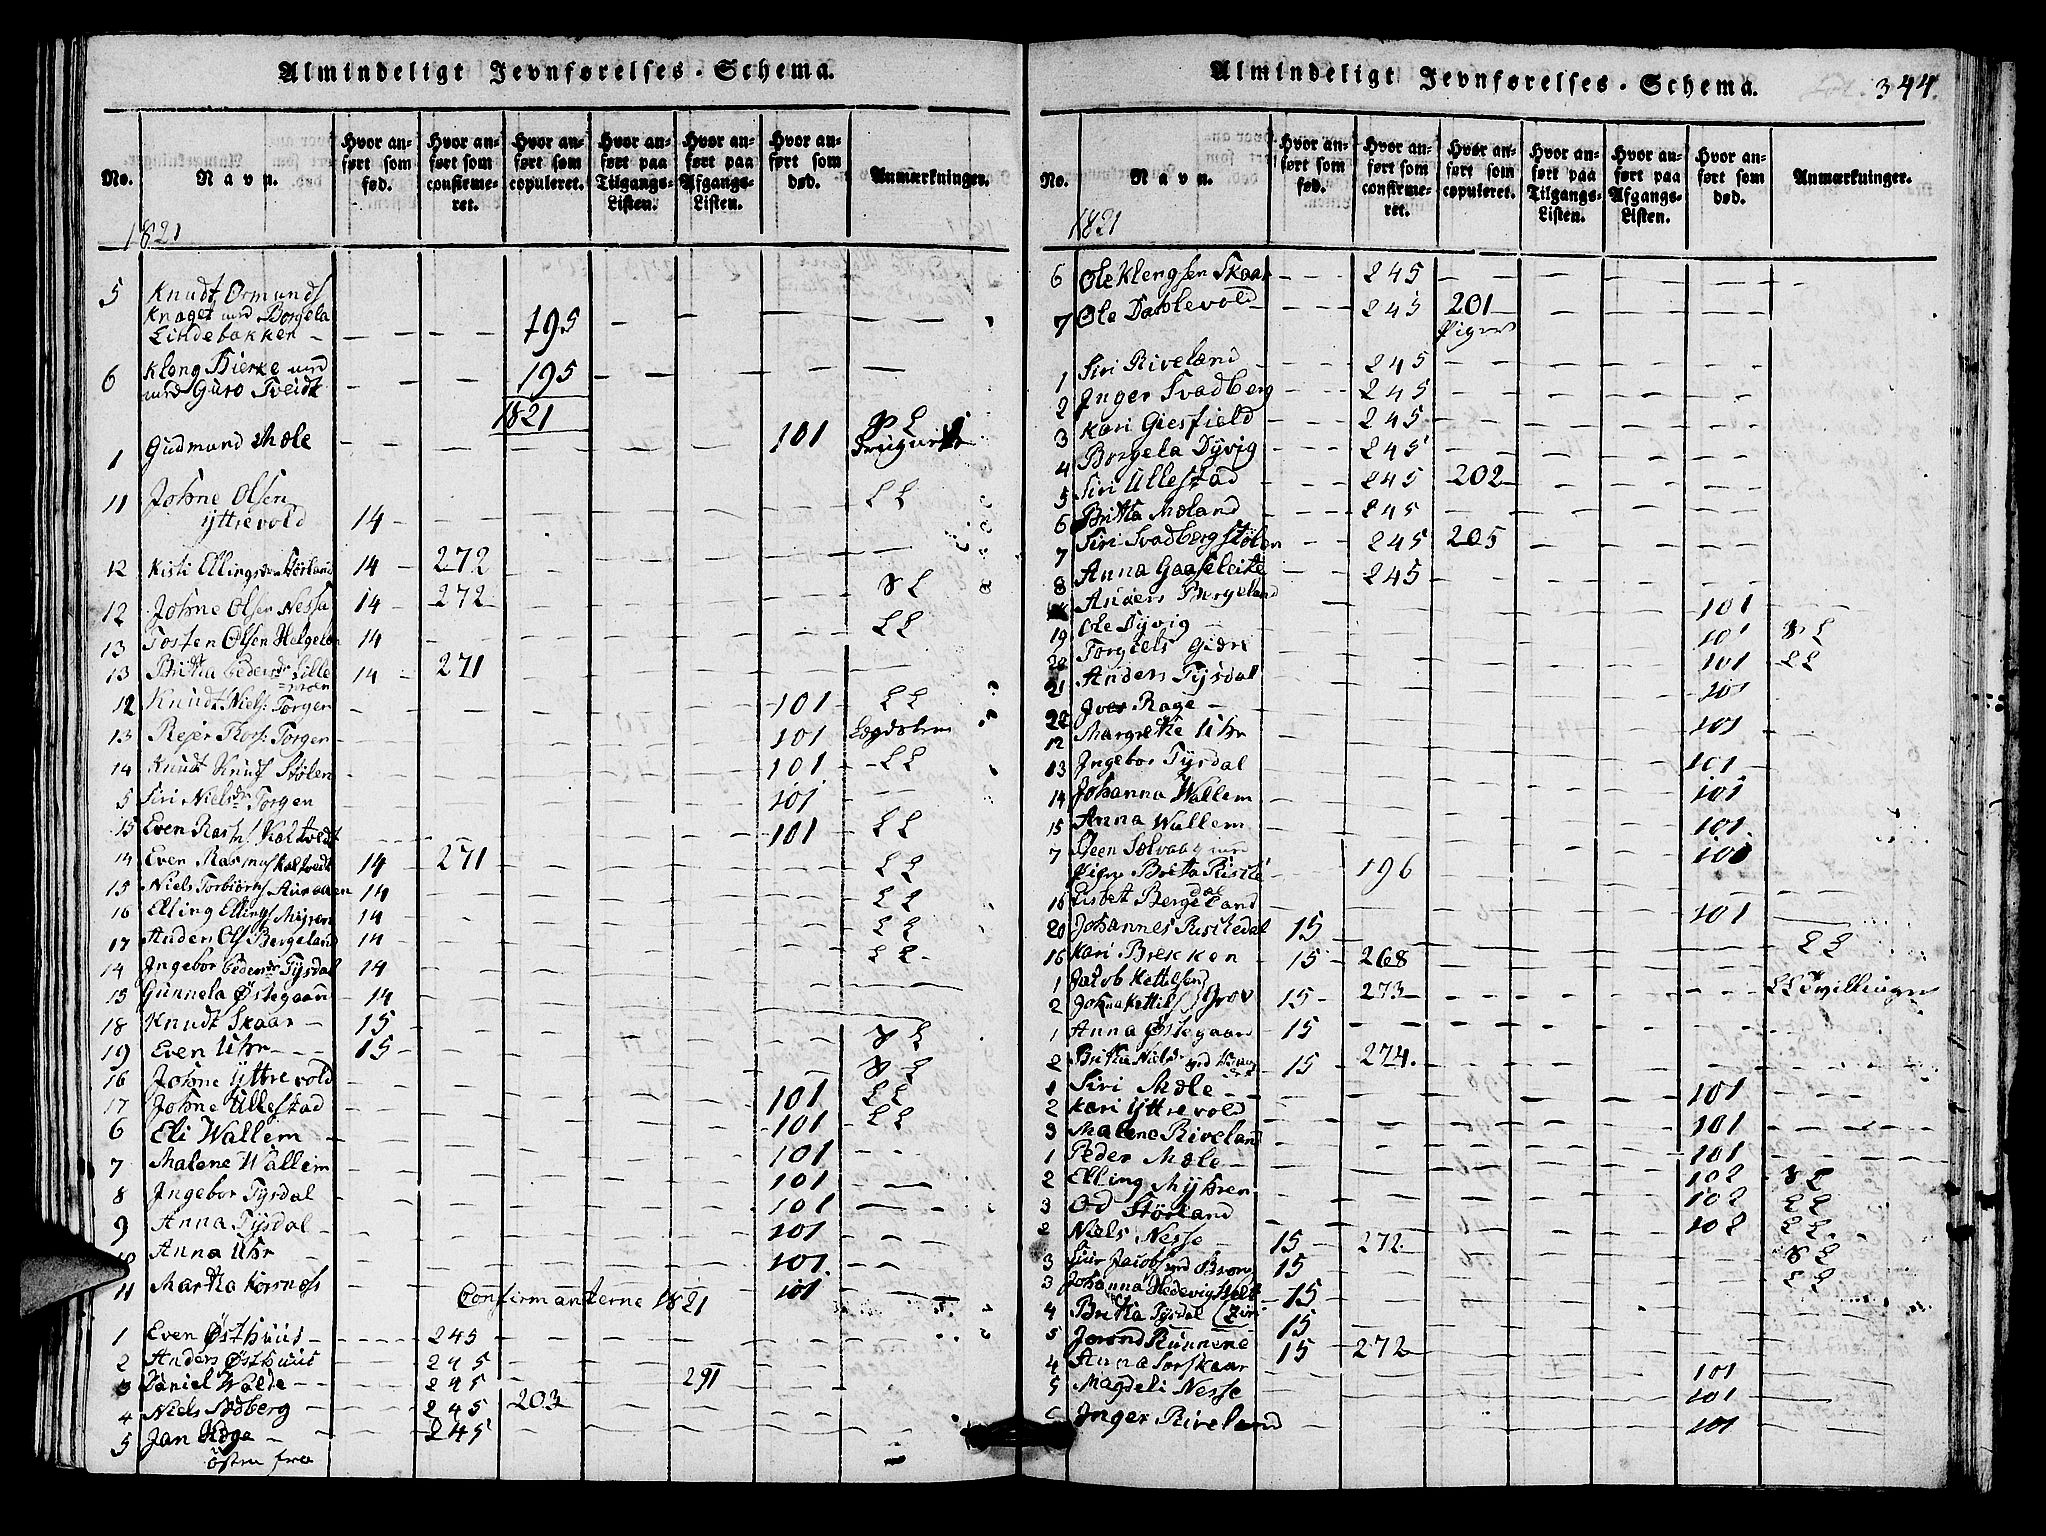 Almindeligt Jevnførelses-Schema.
No. Navn. Hvor anført som fød. Hvor anført som confirmeret. Hvor anført som copuleret. Hvor anført paa Tilgangs-Listen. Hvor anført paa Afgangs-Listen. Hvor anført som død. Anmærkninger.
1821
5 Knudt Ormunds
Knaget
Lindebakken 195
6 Klong
Guro Tveidt 195
1821
1 Gudmund Mæle 101
11 Johne Olsen
Yttrevold 14 L L
12 Kisti Ellings Størland 14 272
12 Johne Olsen Nessa 14 272
13 Tosten Olsen 14 L L
13 Britha Peders Lille 14 271
12 Knudt Niels: Torgen 101 L L
13 Rejer Torgen 101
14 Knudt Knuds Stølen 101 L L
5 Siri Nielsdr Torgen 101
15 Even Rasm: Kaltvedt 101 L L
14 Even Rasmus Kaltvedt 14 271
15 Niels Torbiørns 14 L L
16 Elling Ellings Myren 14 L L
17 Anders Ols Bergeland 14 L L
14 Ingebor Pedersdr Tysdal 14
15 Gunnela Østegaard 14
18 Knudt Skaar 15
19 Even Uhr 15
16 Johne Yttrevold 101 L L
17 Johne Ullestad 101 L L
6 Eli Wallem 101
7 Malene Wallem 101
8 Ingebor Tysdal 101
9 Anna Tysdal 101
10 Anna Uhr 101
11 Martha Korsnæs 101
Confirmanterne 1821
1 Even Østhuus 245
2 Anders Østhuus 245
3 Daniel Walde 245 291
4 Niels 245 203
5 Jan 245
Almindeligt Jevnførelses-Schema. 344.
No. Navn. Hvor anført som fød. Hvor anført som confirmeret. Hvor anført som copuleret. Hvor anført paa Tilgangs-Listen. Hvor anført paa Afgangs-Listen. Hvor anført som død. Anmærkninger.
1821
6 Ole Klengsen Skaar 245
7 Ole 245 201
Piger
1 Siri Riveland 245
2 Inger Svadberg 245
3 Kari Giesfield 245
4 Borgela Dyvig 245
5 Siri Ullestad 245 202
6 Britha Moland 245
7 Siri Svadberg Stølen 245 205
8 Anna Gaaseleite 245
Anders Bergeland 101
19 Ole Dyvig 101
20 Torgiels 101 L L
21 Anders Tysdal 101
22 Iver Rage 101
12 Margrethe Uhr
13 Ingebor Tysdal 101
14 Johanna Wallem 101
15 Anna Wallem 101
7 Steen Solvaag 101
Britta 196
16 Lisbet Bergeland 101
20 Johannes Ristedal 15
16 Kari Brekken 15 268 L L
1 Jakob Kettelsen
2 Johna Kettils 15 273 Tvillinger
1 Anna Østegaard 15
2 Britha Nielsdr 15 274.
1 Siri Mæle 101
2 Kari Yttrevold 101
3 Malene Riveland 101
1 Peder Mæle 102
2 Elling Myhren 102 L L
3 Od Størland 102 L L
2 Niels Nesse 15 272
3 Jacobs 15 L L
3 Johanna Hedevig 15
4 Britha Tysdal 15
5 15 272
4 Anna Sorskaar 101
5 Magdeli Nesse 101
6 Inger Riveland 101